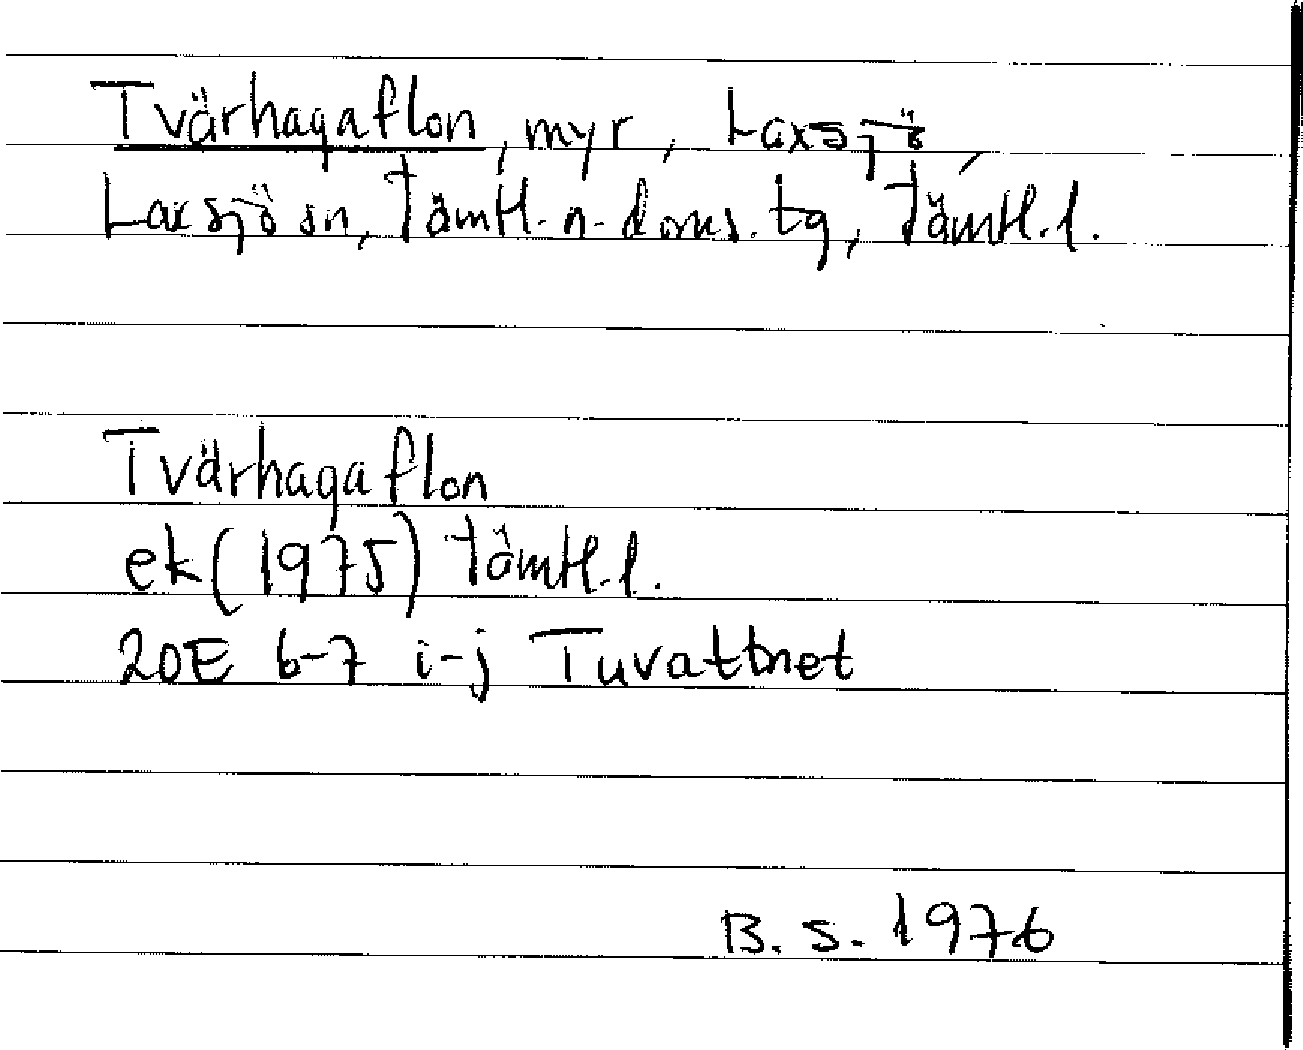 Tvärhagaflon, myr, Laxsjö,
Laxsjö sn, Jämtl. n. doms. tg, Jämtl. l.
Tvärhagaflon
ek (1975) Jämtl. l.
20E 6-7 i-j Tuvattnet
B. S. 1976